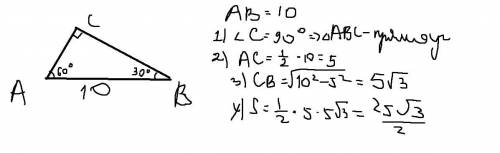 C
60°
30°
A
10
B
AB = 10
1) ∠C = 90° ⇒ △ABC - прямоуг
2) AC = 1/2 · 10 = 5
3) CB = √(10² - 5²) = 5√3
4) S = 1/2 · 5 · 5√3 = 25√3/2